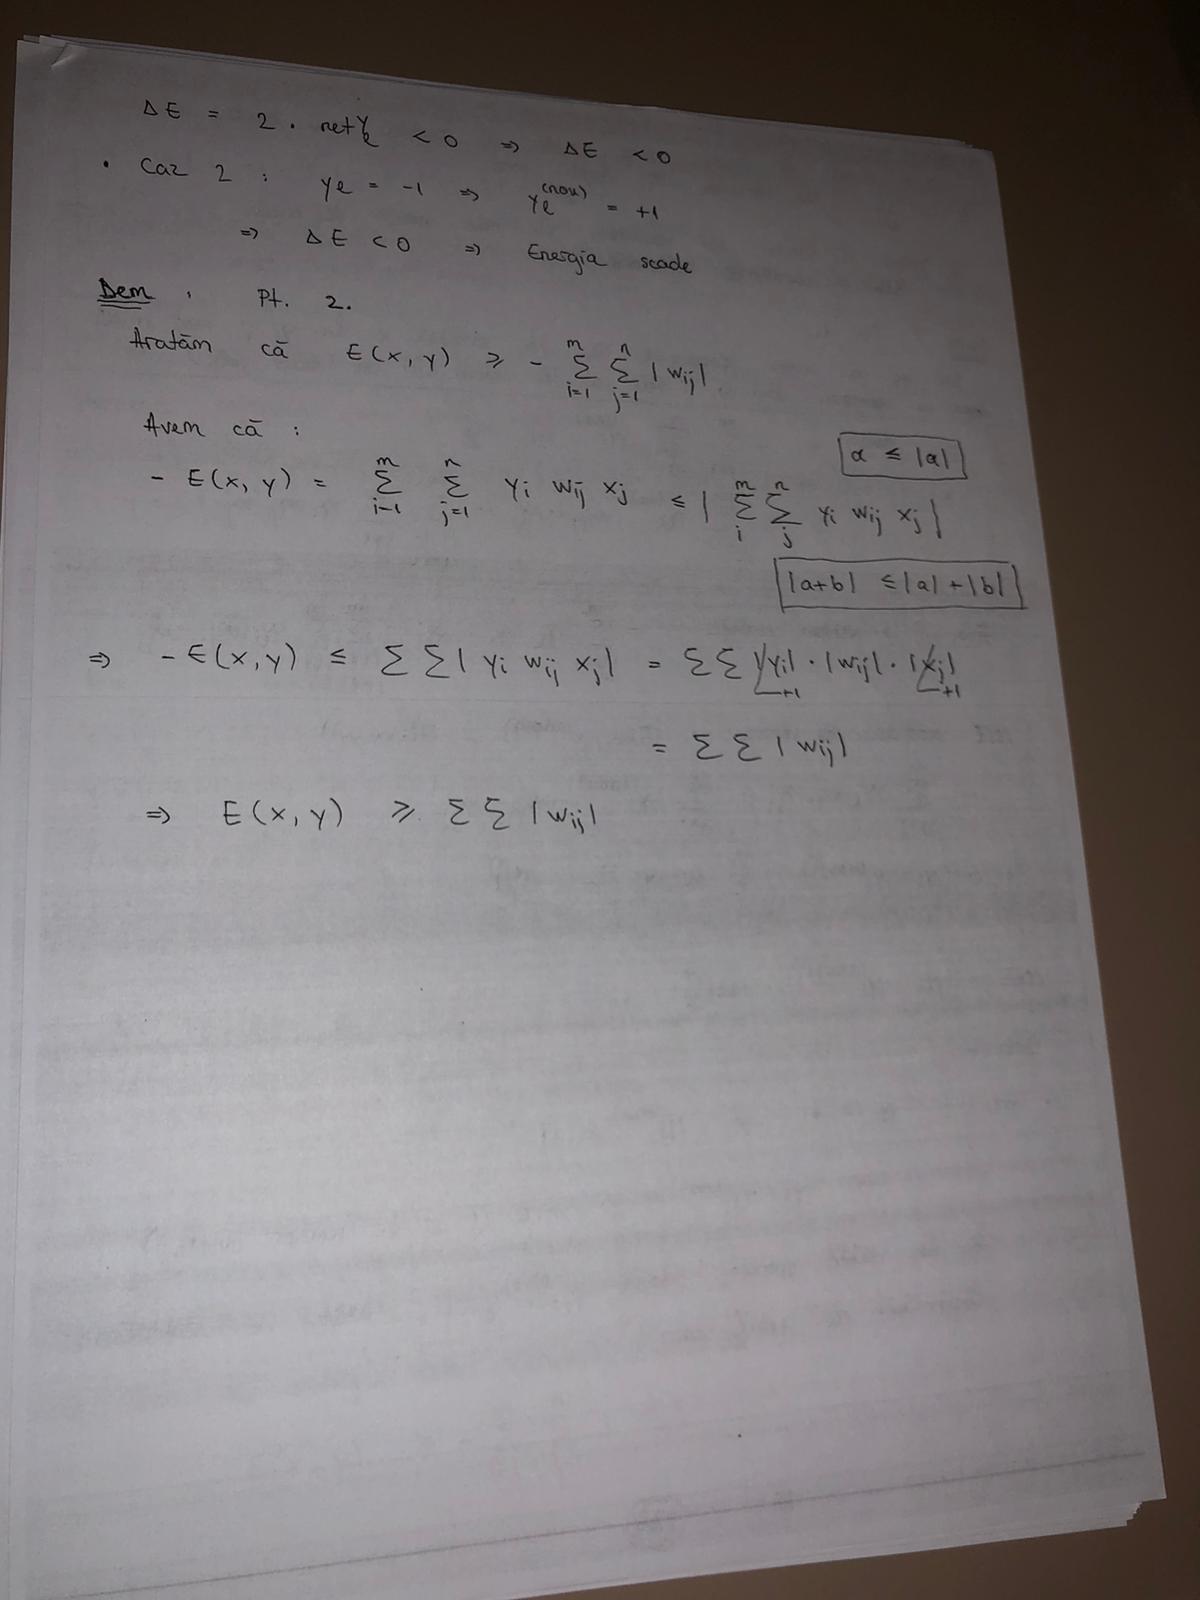 ΔE = 2 · net_k^y < 0 ⇒ ΔE < 0
· Caz 2 : y_k = -1 ⇒ y_k^(nou) = +1
⇒ ΔE < 0 ⇒ Energia scade
Dem . Pt. 2.
Aratăm că E(x, y) ≥ - Σ_{i=1}^{m} Σ_{j=1}^{n} |w_ij|
Avem că :
a ≤ |a|
- E(x, y) = Σ_{i-1}^{m} Σ_{j=1}^{n} y_i w_ij x_j ≤ | Σ_i^m Σ_j^n y_i w_ij x_j |
|a+b| ≤ |a| + |b|
⇒ - E(x, y) ≤ Σ Σ | y_i w_ij x_j | = Σ Σ |y_i| · |w_ij| · |x_j|
+1 +1
= Σ Σ | w_ij |
⇒ E(x, y) ≥ Σ Σ | w_ij |